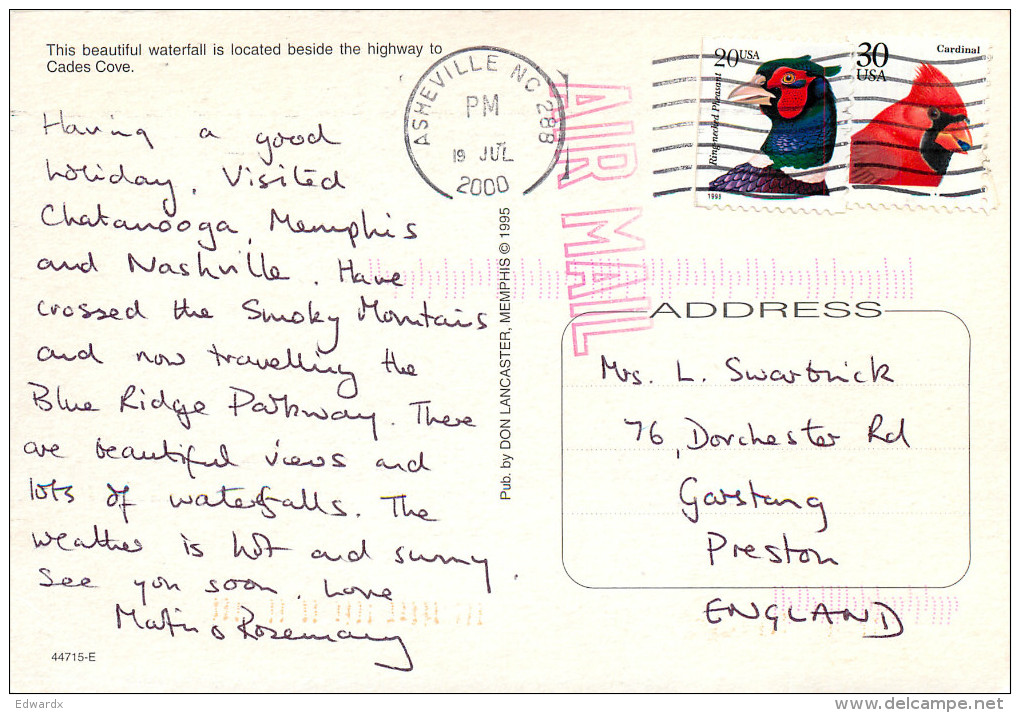 This beautiful waterfall is located beside the highway to
Cades Cove.
Having a good
holiday. Visited
Chatanooga, Memphis
and Nashville. Have
crossed the Smoky Mountains
and now travelling the
Blue Ridge Parkway. There
are beautiful views and
lots of waterfalls. The
weather is hot and sunny.
See you soon. Love
Martin & Rosemary
44715-E
Pub. by DON LANCASTER, MEMPHIS © 1995
ASHEVILLE NC 288
PM
19 JUL
2000
AIR MAIL
20 USA
Ring-necked Pheasant
1998
30
USA
Cardinal
ADDRESS
Mrs. L. Swarbrick
76, Dorchester Rd
Garstang
Preston
ENGLAND
Edwardx
www.delcampe.net